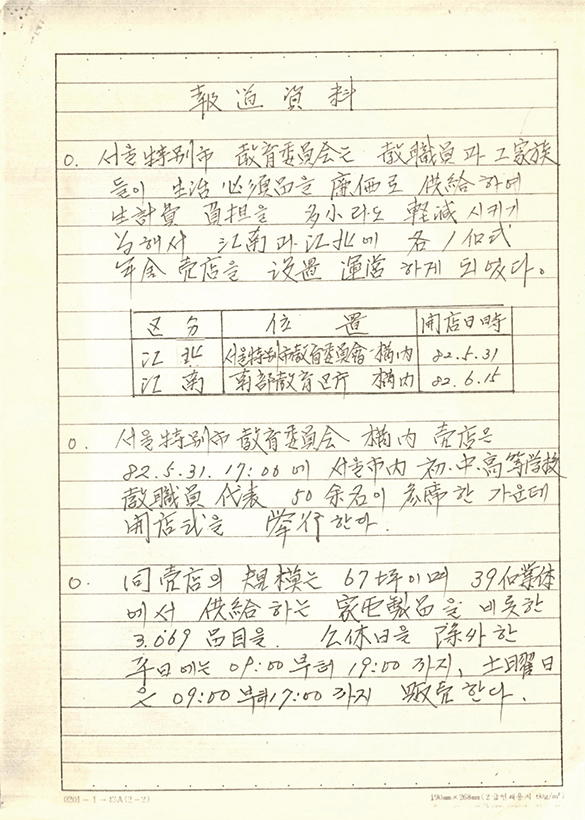 報道資料
0. 서울特別市 敎育委員会는 敎職員과 그家族
들이 生活必須品을 廉価로 供給하여
生計費 負担을 多小라도 軽減시키기
위해서 江南과 江北에 各1個式
売店을 設置 運営하게 되었다。
区分 位置 開店日時
江北 서울特別市敎育委員會 構内 82.5.31
江南 南部敎育区庁 構内 82.6.15
0. 서울特別市 敎育委員会 構内 売店은
82.5.31. 17:00에 서울市内 初.中高等学校
敎職員 代表 50余名이 参席한 가운데
開店式을 挙行한다.
0. 同売店의 規模는 67坪이며 39個業体
에서 供給하는 家电製品을 비롯한
3.069品目을. 公休日을 除外한
平日에는 09:00부터 19:00까지, 土曜日
은 09:00부터17:00까지 販売한다.
0201-1-13A(2-2) 190mm×268mm(2급인쇄용지 60g/㎡)